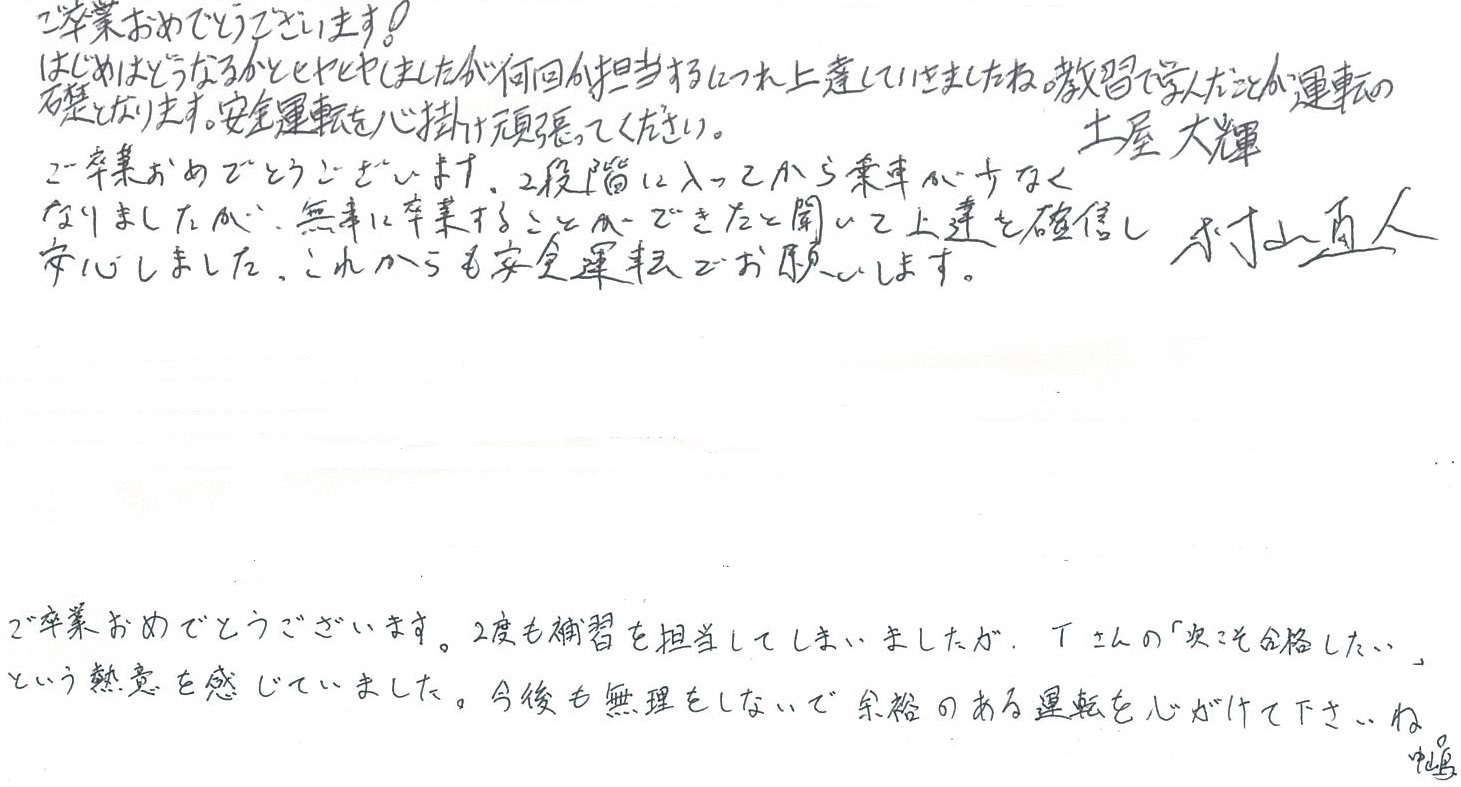 ご卒業おめでとうございます!
はじめはどうなるかとヒヤヒヤしましたが何回か担当するにつれ上達していきましたね。教習で学んだことが運転の
礎となります。安全運転を心掛け頑張ってください。
土屋 大輝
ご卒業おめでとうございます。2段階に入ってから乗車が少なく
なりましたが、無事に卒業することができたと聞いて上達を確信し
安心しました。これからも安全運転でお願いします。
村山直人
ご卒業おめでとうございます。2度も補習を担当してしまいましたが、Tさんの「次こそ合格したい」
という熱意を感じていました。今後も無理をしないで余裕のある運転を心がけて下さいね。
中嶋